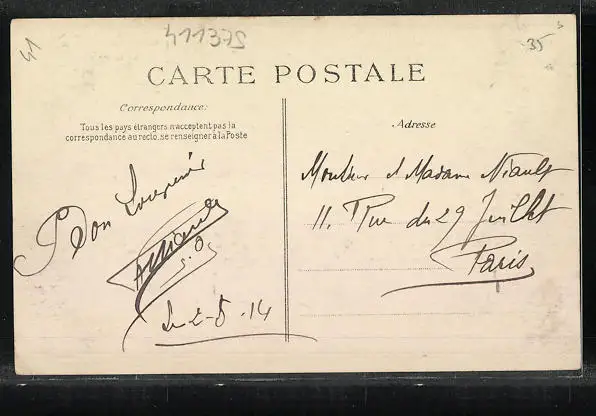 41
411375
35
CARTE POSTALE
Correspondance:
Tous les pays étrangers n'acceptent pas la
correspondance au recto, se renseigner à la Poste
Adresse
Bon Souvenir
Le 2-8-14
Monsieur et Madame Niault
11. Rue du 29 Juillet
Paris